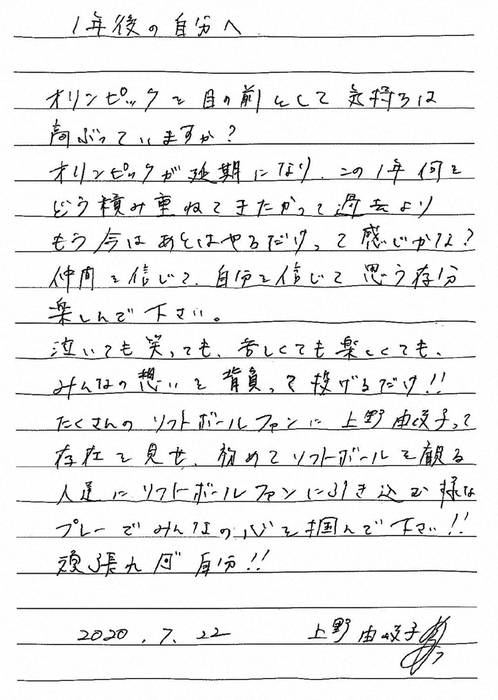 1年後の自分へ
オリンピックを目の前として気持ちは
高ぶっていますか?
オリンピックが延期になり、この1年何を
どう積み重ねてきたかって過去より
もう今はあとはやるだけって感じかな?
仲間を信じて、自分を信じて思う存分
楽しんで下さい。
泣いても笑っても、苦しくても楽しくても、
みんなの想いを背負って投げるだけ!!
たくさんのソフトボールファンに上野由岐子って
存在を見せ、初めてソフトボールを観る
人達にソフトボールファンに引き込む様な
プレーでみんなの心を掴んで下さい!!
頑張れ 自分!!
2020.7.22 上野由岐子